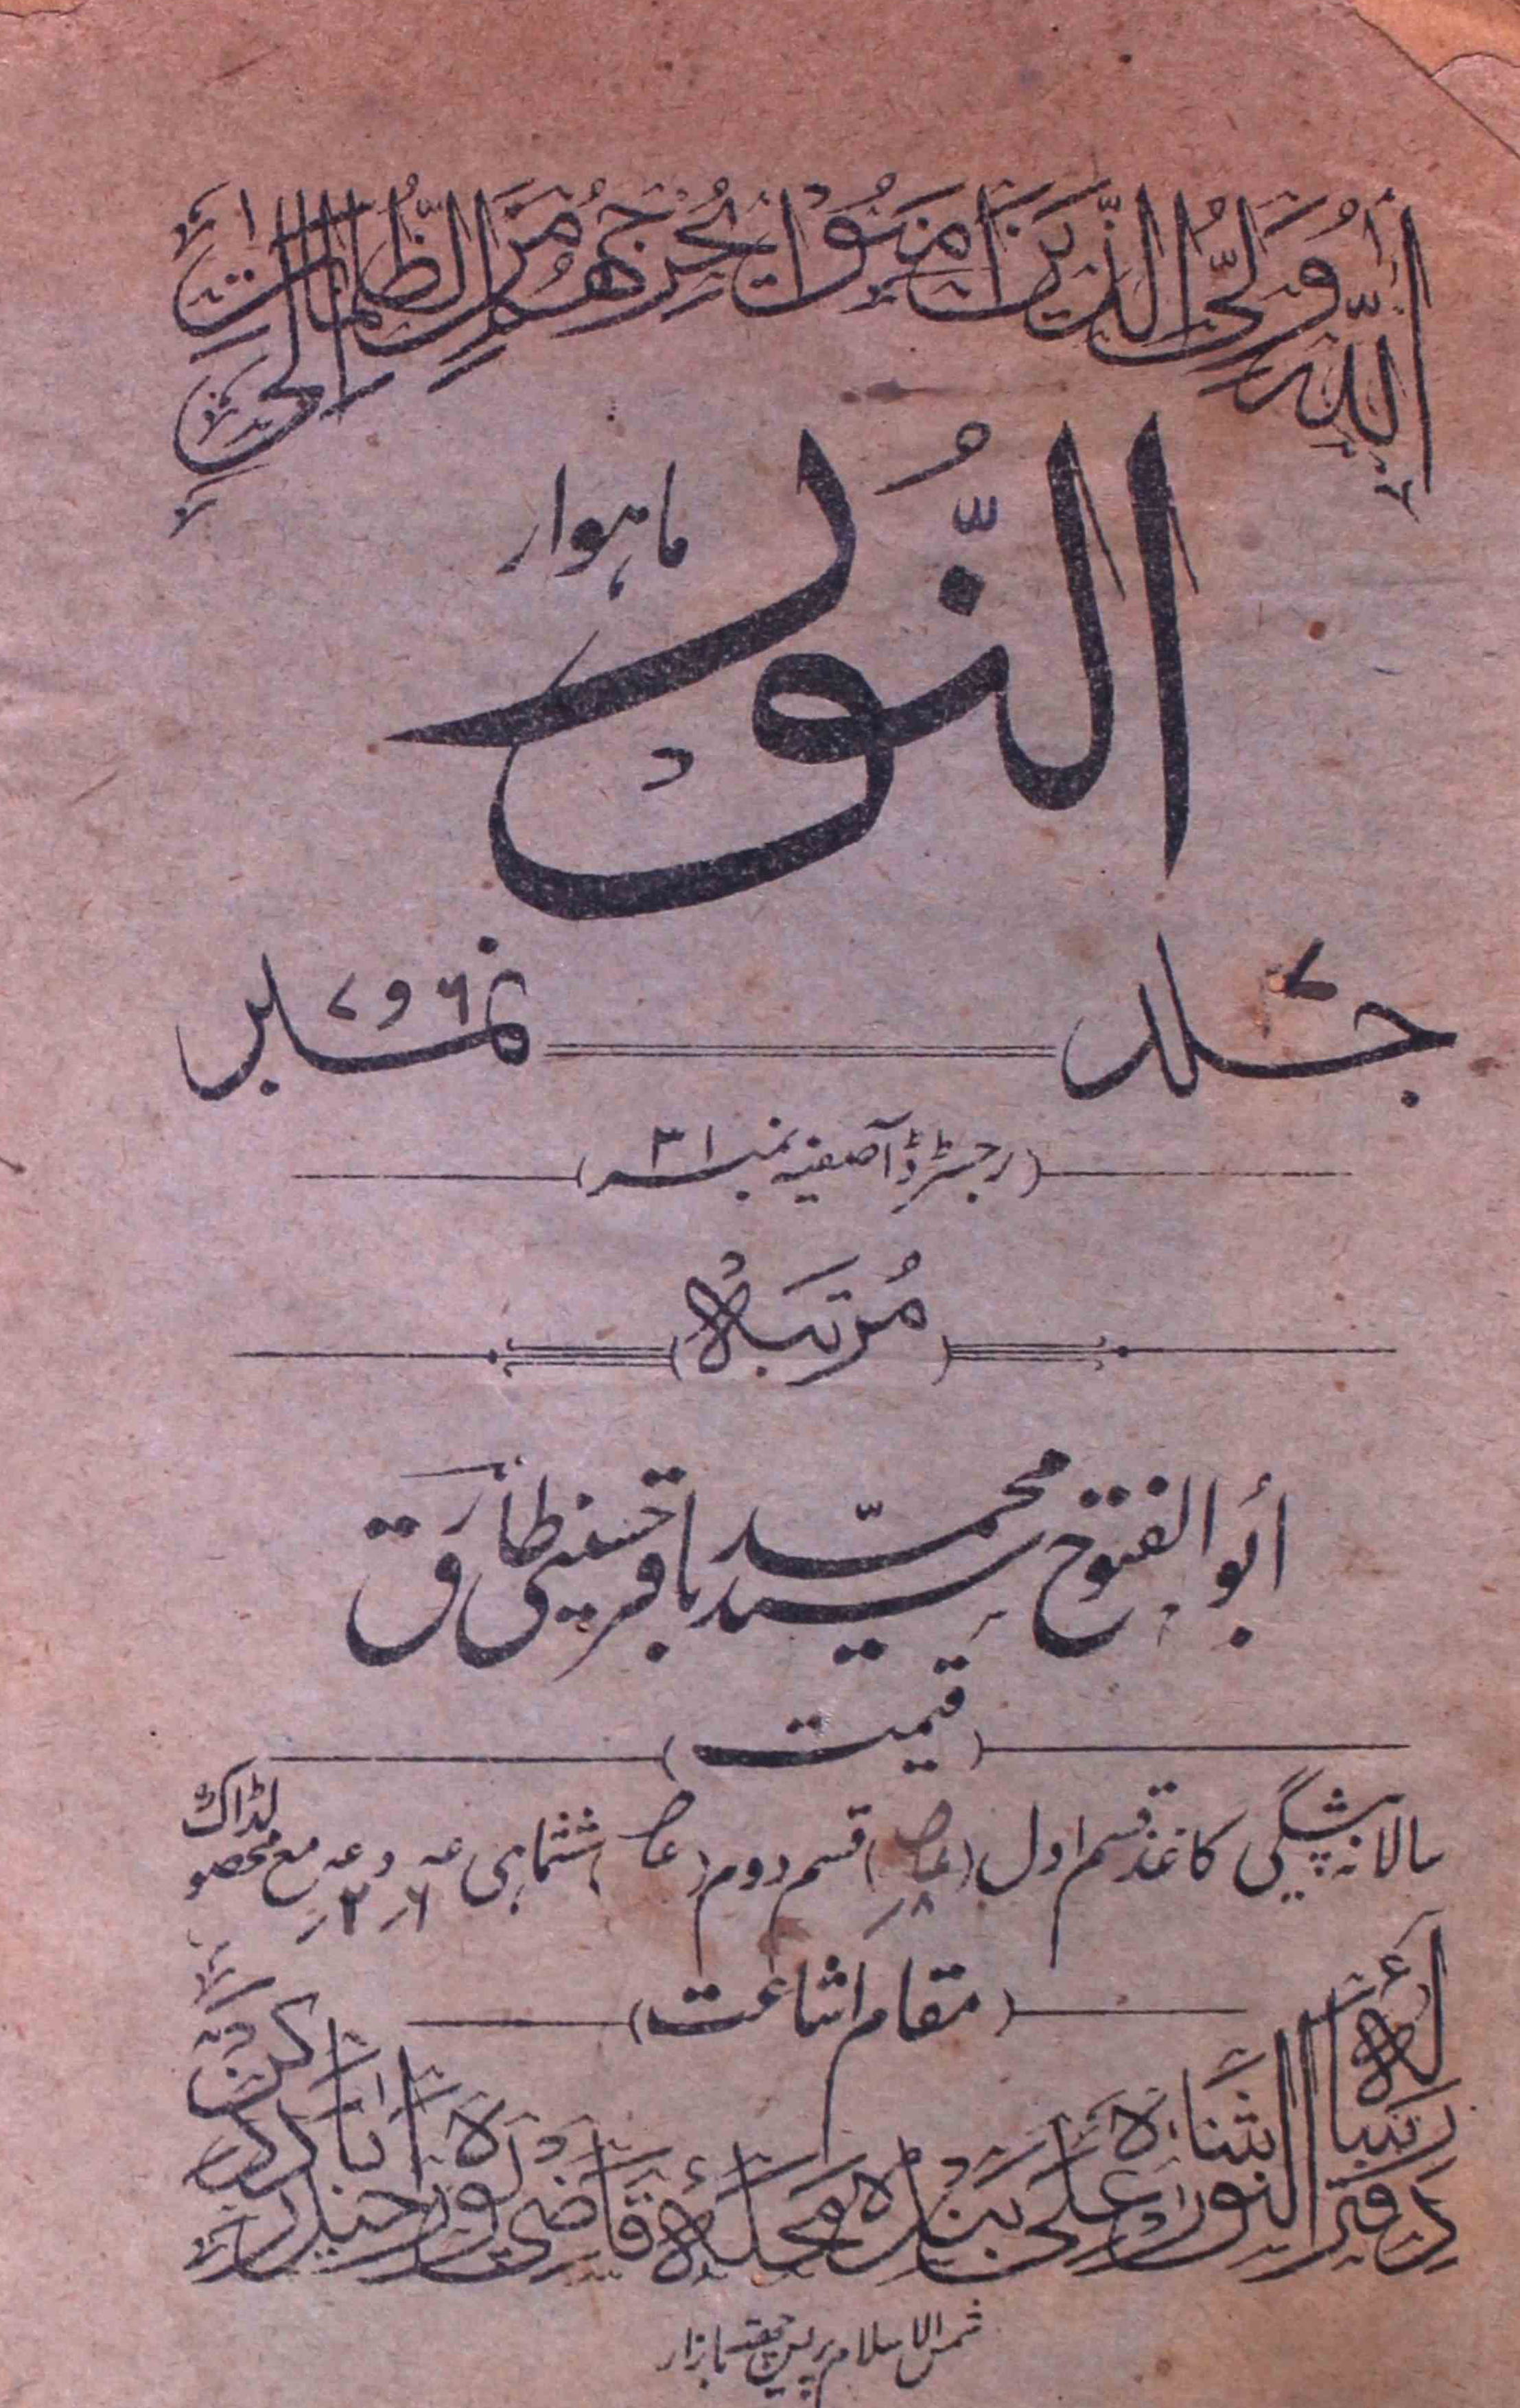 اَللّٰهُ وَلِیُّ الَّذِیْنَ اٰمَنُوْا یُخْرِجُهُمْ مِّنَ الظُّلُمَاتِ اِلَی
النُّور
ماہوار
جلد ۷ نمبر ۶ و ۷
(رجسٹرڈ آصفیہ نمبر ۳۱)
(مُرتبہ)
أبو الفتوح سید محمّد باقر حسینی طارق
(قیمت)
سالانہ پیشگی کاغذ قسم اول ( ) قسم دوم ( ) ششماہی مع محصولڈاک
(مقام اشاعت)
دفتر النور علی بنڈہ محلہ قاضی پورہ حیدرآباد دکن
شمس الاسلام پریس چھتہ بازار